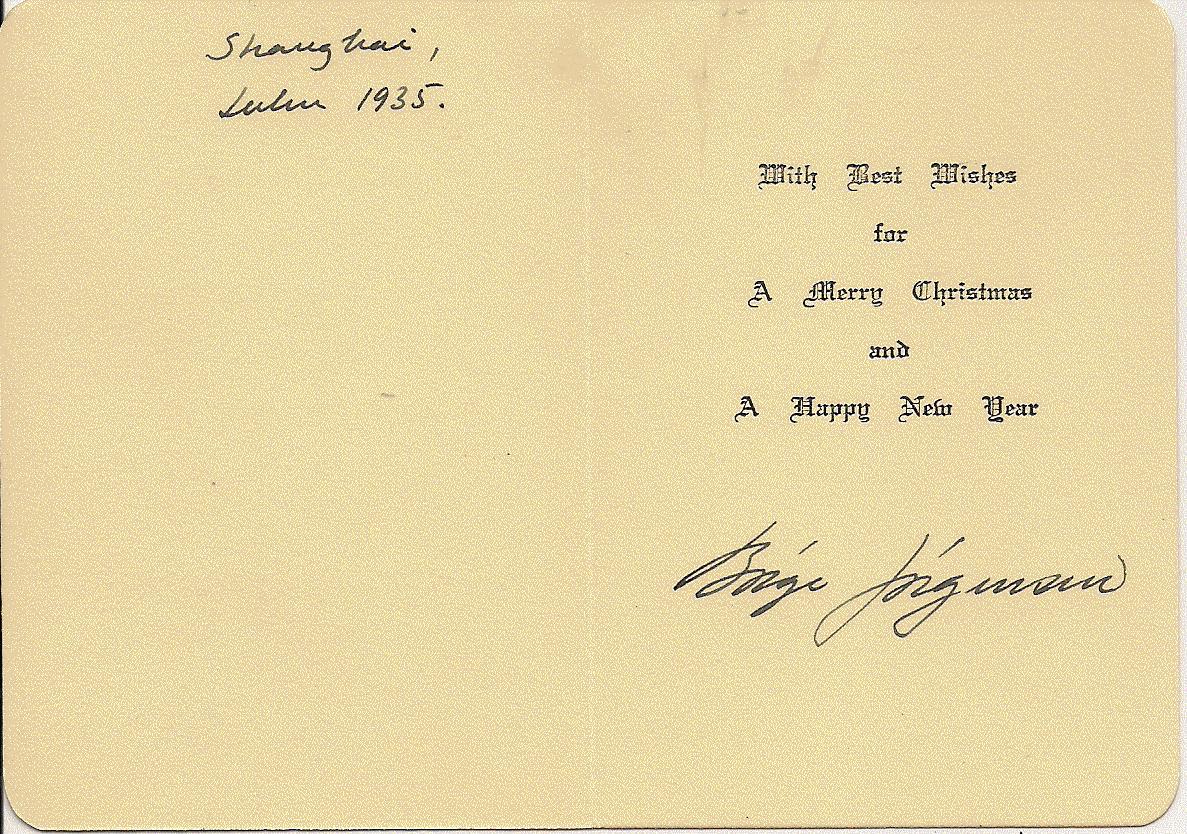 Shanghai,
Julen 1935.
With Best Wishes
for
A Merry Christmas
and
A Happy New Year
Bórge Jórgensen